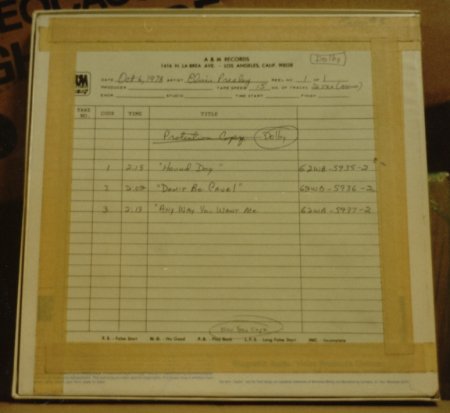 A & M RECORDS
1416 N. LA BREA AVE. - LOS ANGELES, CALIF. 90028
Dolby
A&M
DATE Oct 6, 1978 ARTIST Elvis Presley REEL NO. 1 OF 1
PRODUCER TAPE SPEED 15 NO. OF TRACKS
ENGR. STUDIO TIME START FINISH
TAKE NO. CODE TIME TITLE
Protection Copy Dolby
1 2:15 "Hound Dog" G2WB-5935-2
2 2:02 "Don't Be Cruel" G2WB-5936-2
3 2:13 "Any Way You Want Me G2WB-5977-2
F.S. - False Start N.G. - No Good P.B. - Play Back L.F.S. - Long False Start INC. - Incomplete